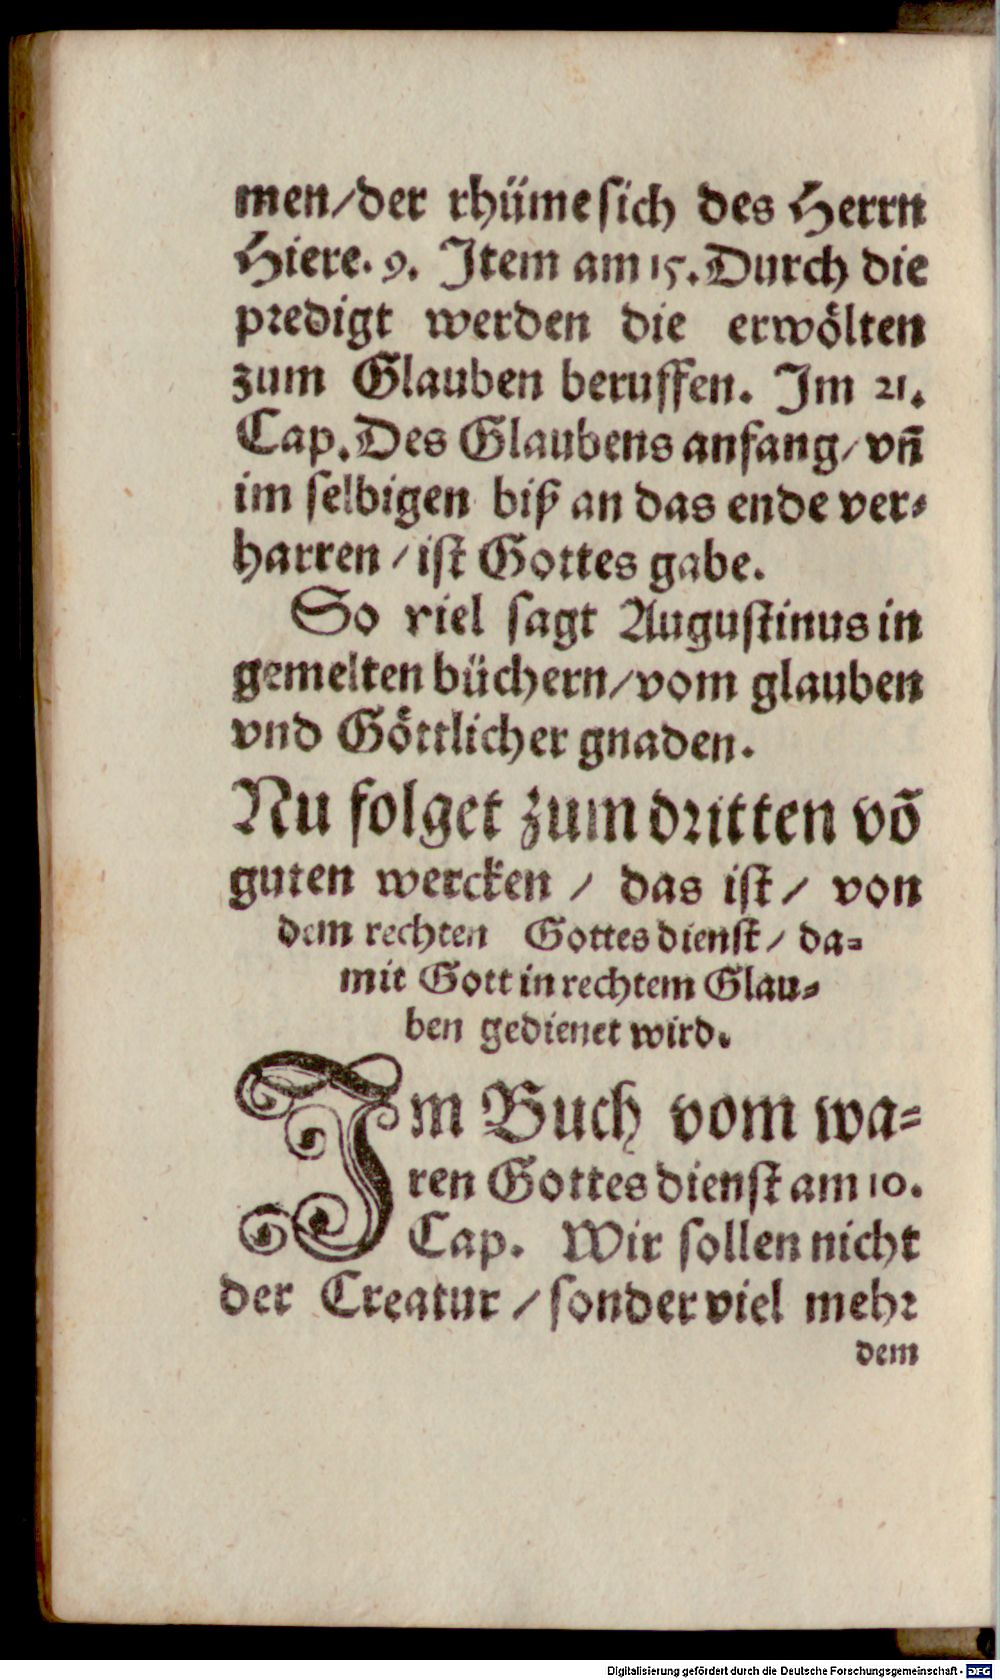 men/der rhüme sich des Herrn
Hiere. 9. Item am 15. Durch die
predigt werden die erwölten
zum Glauben beruffen. Im 21.
Cap. Des Glaubens anfang/ vñ
im selbigen biß an das ende ver-
harren / ist Gottes gabe.
So viel sagt Augustinus in
gemelten büchern/vom glauben
vnd Göttlicher gnaden.
Nu folget zum dritten võ
guten wercken / das ist/ von
dem rechten Gottesdienst/ da-
mit Gott in rechtem Glau-
ben gedienet wird.
Im Buch vom wa-
ren Gottesdienst am 10.
Cap. Wir sollen nicht
der Creatur / sonder viel mehr
dem
Digitalisierung gefördert durch die Deutsche Forschungsgemeinschaft - DFG